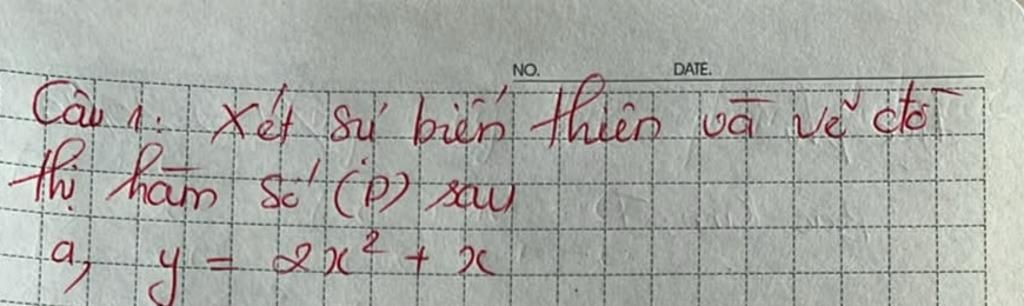 NO. DATE.
Câu 1. Xét sự biến thiên và vẽ đồ
thị hàm số (P) sau
a, y = 2x² + x